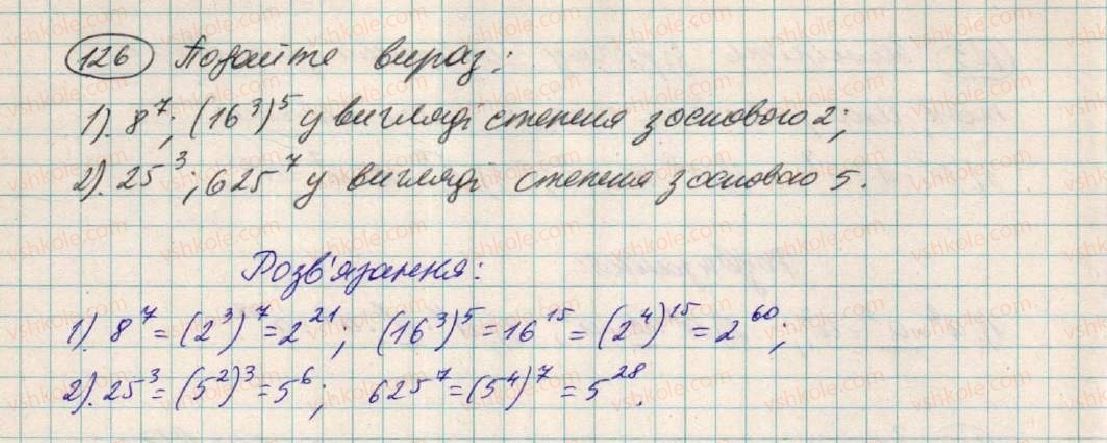 126 Подайте вираз:
1). 8^7; (16^3)^5 у вигляді степеня з основою 2;
2). 25^3; 625^7 у вигляді степеня з основою 5.
Розв'язання:
1). 8^7 = (2^3)^7 = 2^21; (16^3)^5 = 16^15 = (2^4)^15 = 2^60;
2). 25^3 = (5^2)^3 = 5^6; 625^7 = (5^4)^7 = 5^28.